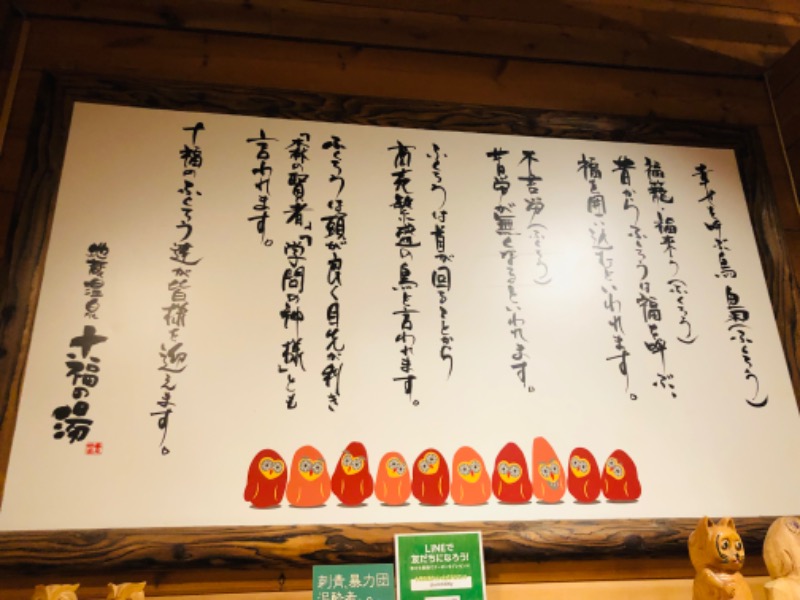 幸せを呼ぶ鳥 梟(ふくろう)
福籠・福来う(ふくろう)
昔からふくろうは福を呼ぶ、
福を囲い込むといわれます。
不苦労(ふくろう)
苦労が無くなるといわれます。
ふくろうは首が回ることから
商売繁盛の鳥と言われます。
ふくろうは頭が良く目先が利き
「森の賢者」「学問の神様」とも
言われます。
十福のふくろう達が皆様を迎えます。
地蔵温泉
十福の湯
LINEで
友だちになろう!
刺青、暴力団
泥酔者